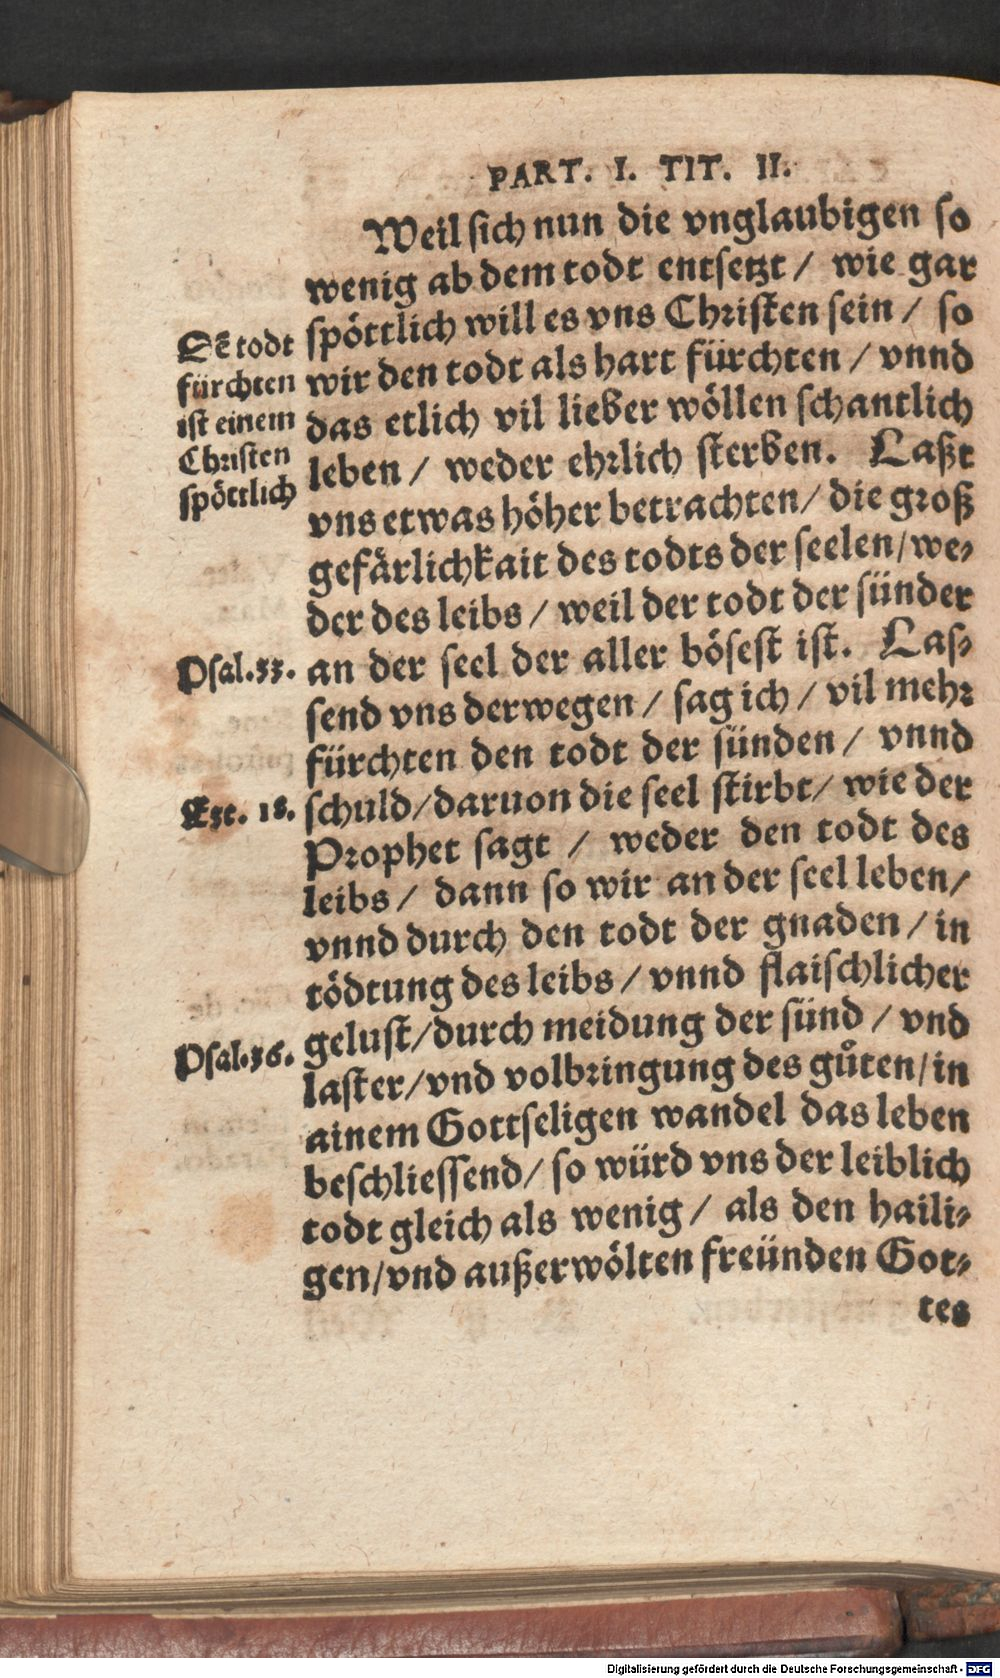 PART. I. TIT. II.
Weil sich nun die vnglaubigen so
wenig ab dem todt entsetzt / wie gar
spöttlich will es vns Christen sein / so
wir den todt als hart fürchten / vnnd
das etlich vil lieber wöllen schantlich
leben / weder ehrlich sterben. Laßt
vns etwas höher betrachten / die groß
gefärlichkait des todts der seelen / we-
der des leibs / weil der todt der sünder
an der seel der aller bösest ist. Las-
send vns derwegen / sag ich / vil mehr
fürchten den todt der sünden / vnnd
schuld / daruon die seel stirbt / wie der
Prophet sagt / weder den todt des
leibs / dann so wir an der seel leben /
vnnd durch den todt der gnaden / in
tödtung des leibs / vnnd flaischlicher
gelust / durch meidung der sünd / vnd
laster / vnd volbringung des gůten / in
ainem Gottseligen wandel das leben
beschliessend / so würd vns der leiblich
todt gleich als wenig / als den haili-
gen / vnd außerwölten freünden Got-
tes
Dē todt
fürchten
ist einem
Christen
spöttlich
Psal. 33.
Eze. 18.
Psal. 36.
Digitalisierung gefördert durch die Deutsche Forschungsgemeinschaft - DFG